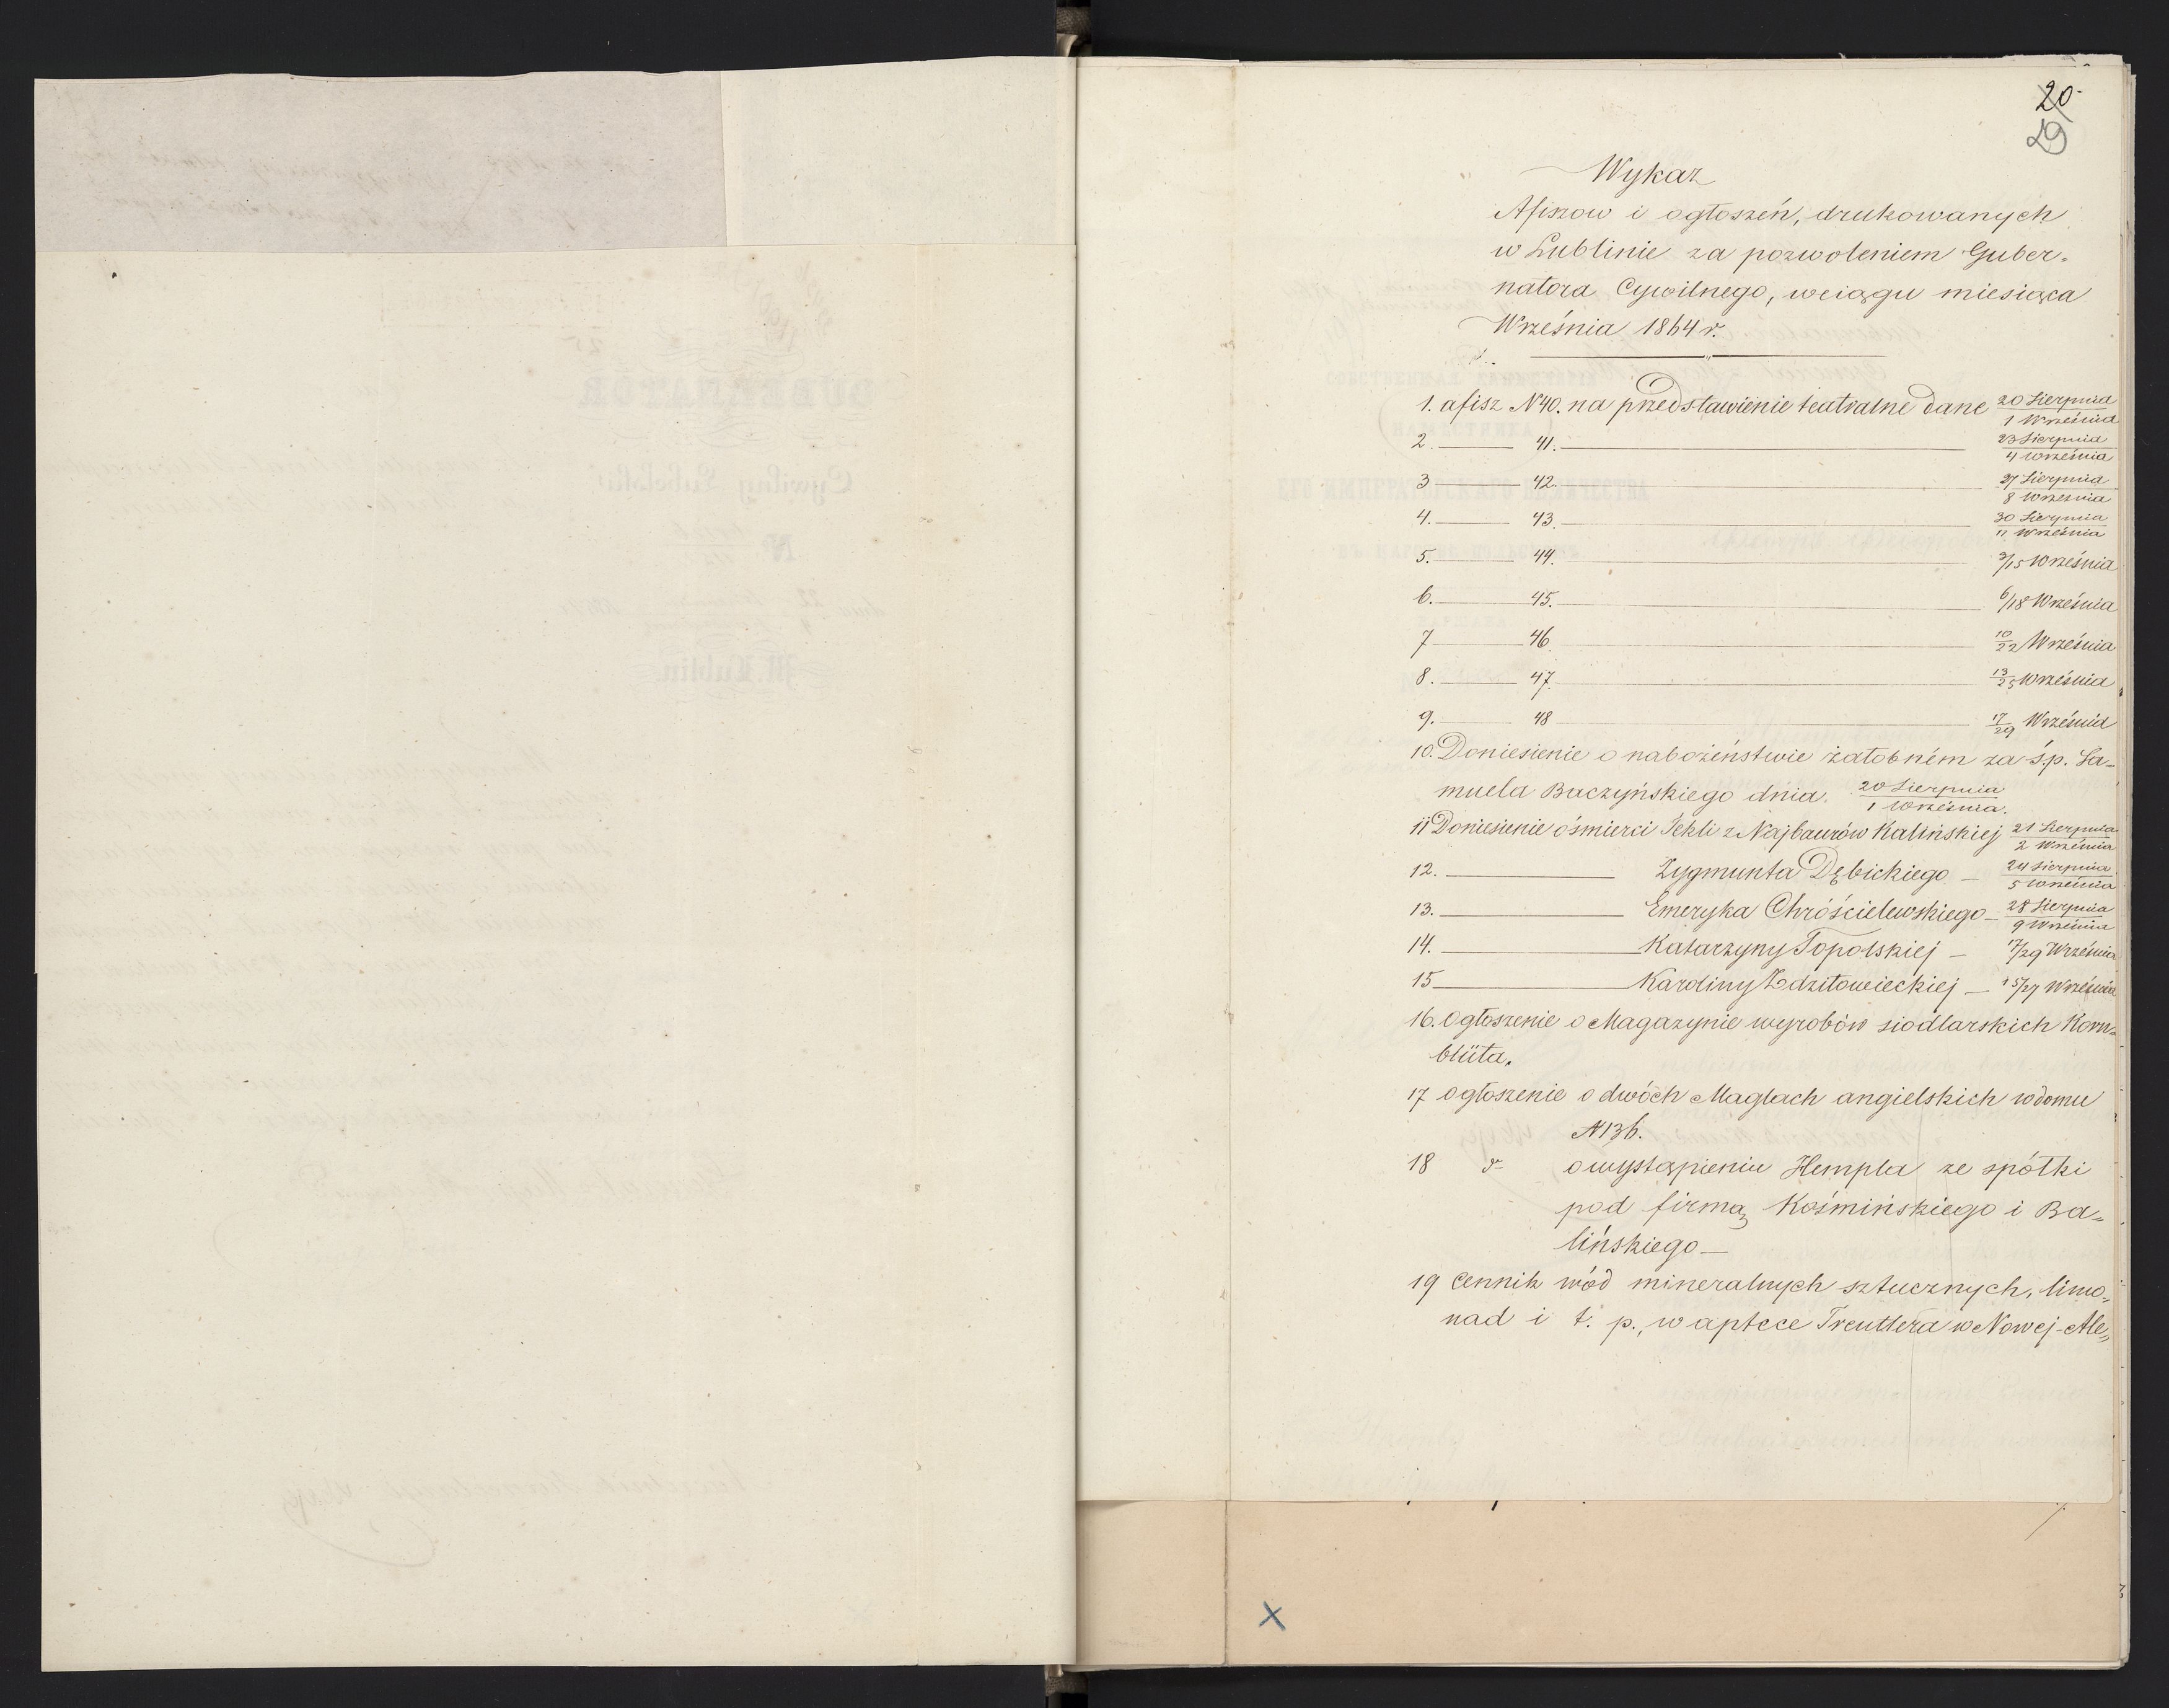 20
29
Wykaz
Afiszow i ogłoszeń, drukowanych
w Lublinie za pozwoleniem Guber-
natora Cywilnego, wciągu miesiąca
Września 1864 r.
1. afisz N40. na przedstawienie teatralne dane 20 Sierpnia / 1 Września
2. ——— 41. ——— 23 Sierpnia / 4 Września
3 ——— 42. ——— 27 Sierpnia / 8 Września
4. ——— 43. ——— 30 Sierpnia / 11 Września
5. ——— 44. ——— 3/15 Września
6. ——— 45. ——— 6/18 Września
7 ——— 46. ——— 10/22 Września
8. ——— 47. ——— 13/25 Września
9. ——— 48 ——— 17/29 Września
10. Doniesienie o nabożeństwie żałobném za ś.p. Sa-
muela Baczyńskiego dnia. 20 Sierpnia / 1 Września.
11 Doniesienie ośmierci Tekli z Najbaurów Kalińskiej 21 Sierpnia / 2 Września
12. ——— Zygmunta Dębickiego — 24 Sierpnia / 5 Września
13. ——— Emeryka Chróścielewskiego — 28 Sierpnia / 9 Września
14. ——— Katarzyny Topolskiej — 17/29 Września
15 ——— Karoliny Zdzitowieckiej — 15/27 Września
16. Ogłoszenie o Magazynie wyrobów siodlarskich Korn-
blüta.
17 Ogłoszenie o dwóch Maglach angielskich w domu
N136.
18 do owystąpieniu Hempla ze spółki
pod firmą Kośmińskiego i Ba-
lińskiego —
19 Cennik wód mineralnych sztucznych, limo-
nad i t. p., w aptece Treutlera w Nowej-Ale-